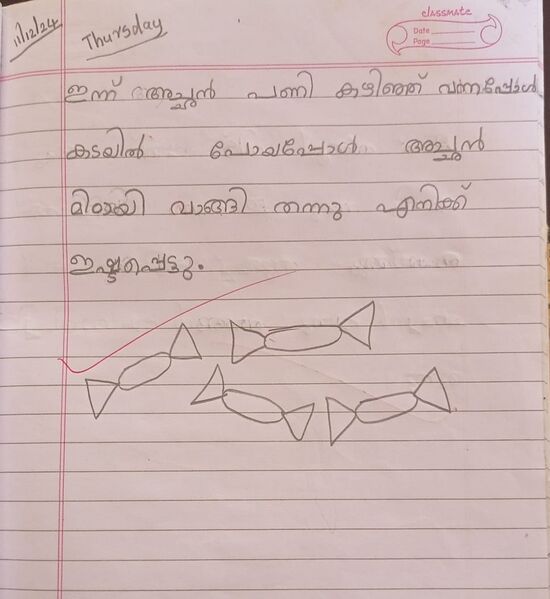 11/12/24 Thursday
classmate
Date
Page
ഇന്ന് അച്ചൻ പണി കഴിഞ്ഞ് വന്നപ്പോൾ
കടയിൽ പോയപ്പോൾ അച്ചൻ
മിഠായി വാങ്ങി തന്നു എനിക്ക്
ഇഷ്ടപ്പെട്ടു.